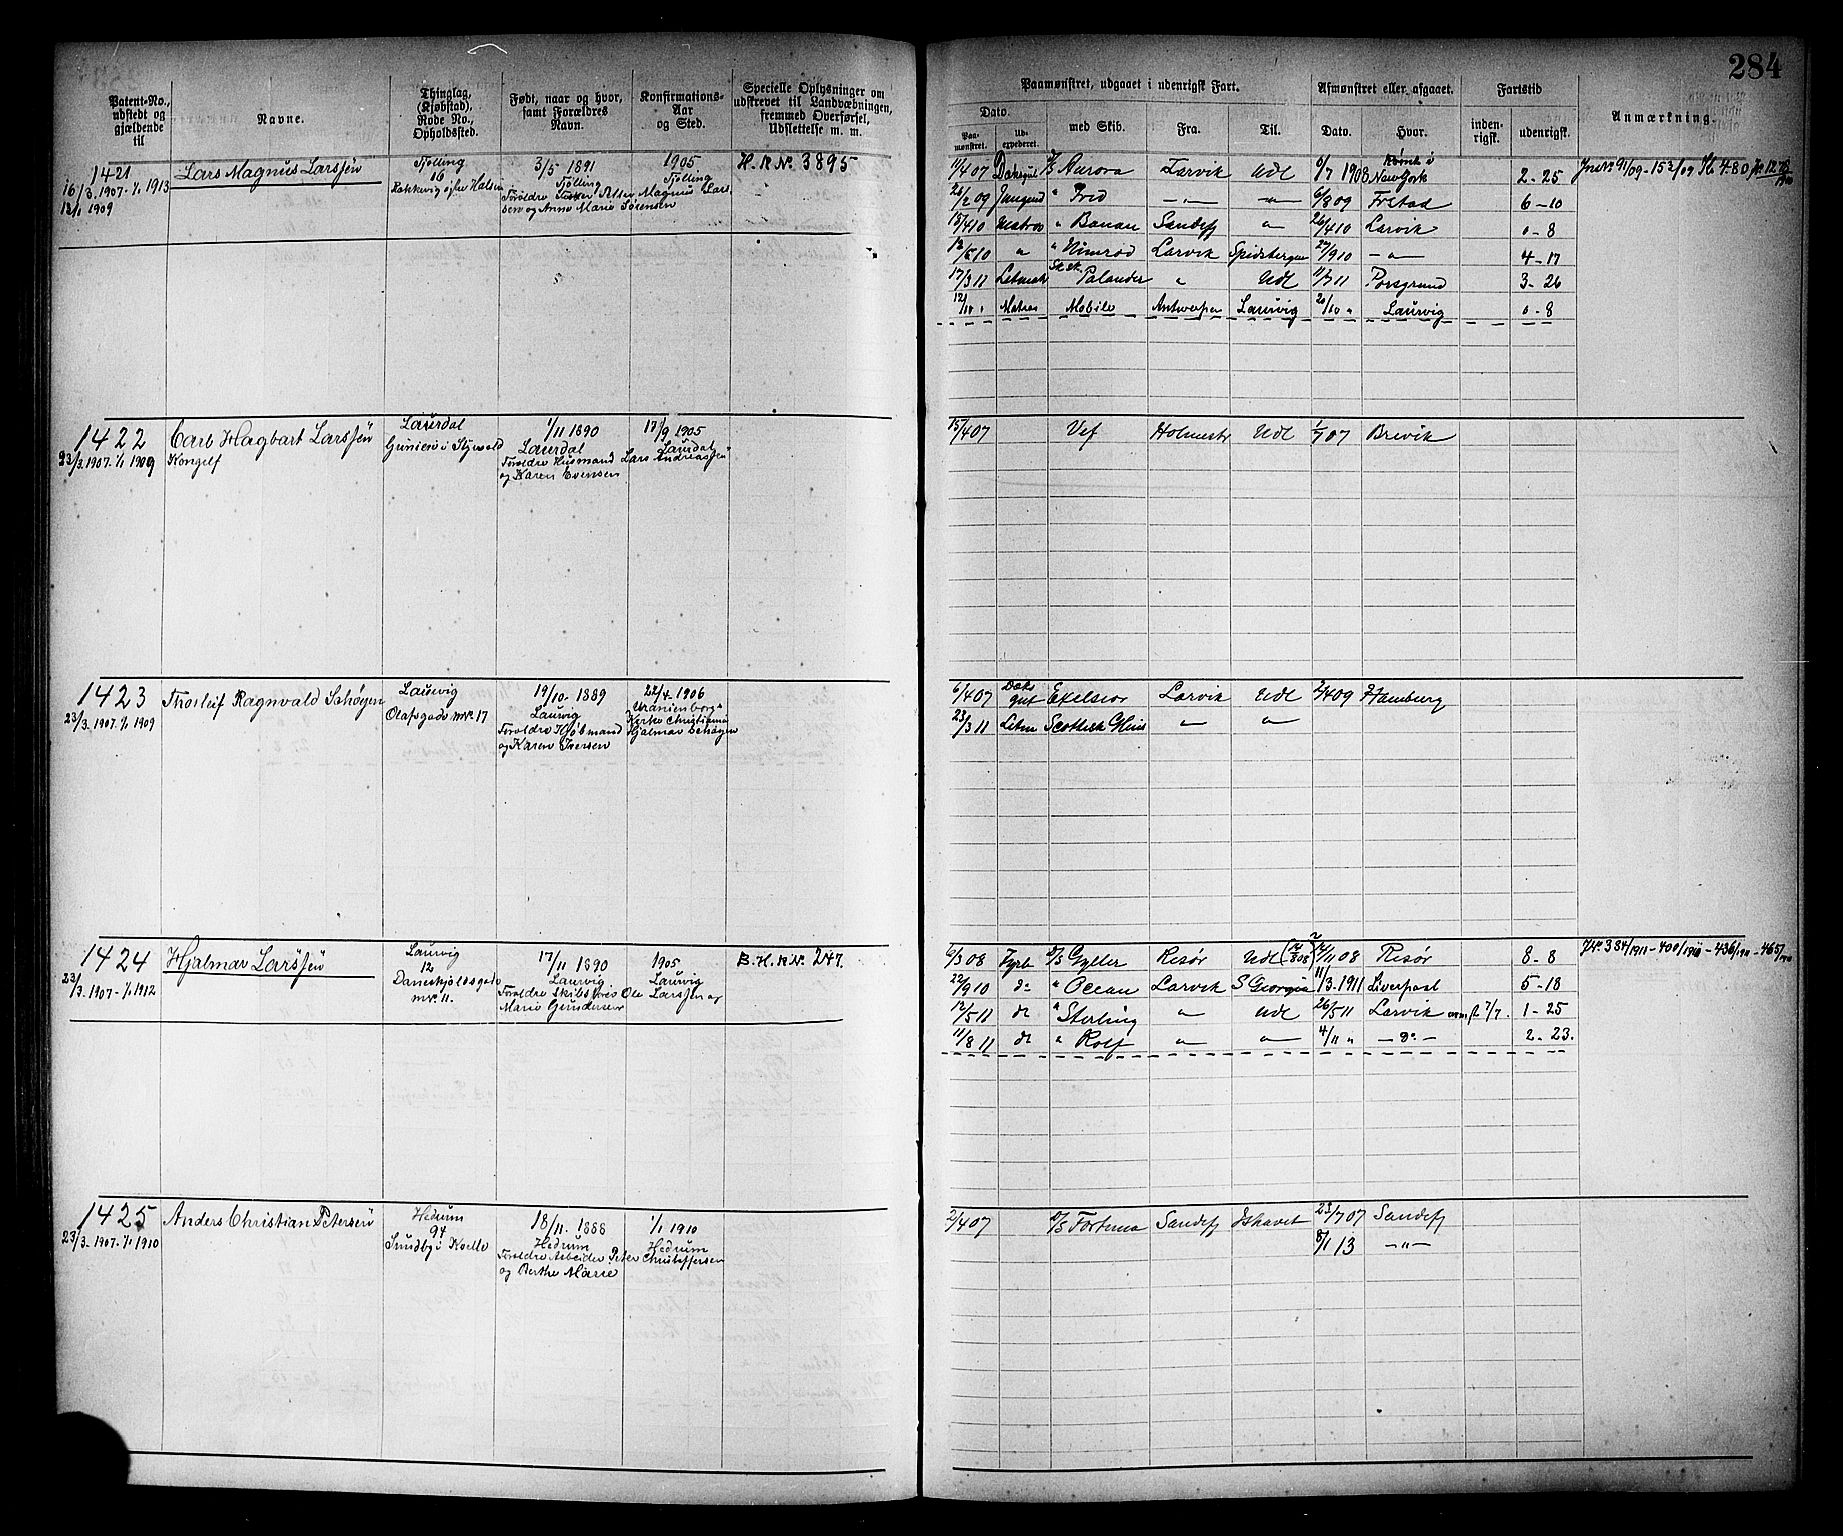 284
Patent-No., udstedt og gjældende til
Navne.
Thinglag, (Kjøbstad), Rode No., Opholdssted.
Født, naar og hvor, samt Forældres Navn.
Konfirmations- Aar og Sted.
Specielle Oplysninger om udskrevet til Landværnsningen, fremmed Overførsel, Udslettelse m. m.
Paamønstret, udgaaet i udenrigsk Fart.
Dato.
Paamønstret.
Udexpederet.
med Skib.
Fra.
Til.
Afmønstret eller afgaaet.
Dato.
Hvor.
Fartstid
indenrigsk.
udenrigsk.
Anmærkning.
1421
16/3. 1907. 1/1 1913
12/1 1909
Lars Magnus Larssen
Tjølling
16
3/5 1891
Tjølling
Forældre Peter Magnus Larssen og Anne Marie Sørensen
1905
Tjølling
H. R No. 3895
11/4 07 S/S Aurora Larvik Udl 6/7 1908 New York 2-25
26/2 09 Jungmd " Fred 6/8 09 Frstad 6-10
15/4 10 Matros " Banan Sandefj " 26/4 10 Larvik 0-8
12/5 10 " " Nimrod Larvik Spidsbergen 27/9 10 — " — 4-17
17/3 11 Letmat Palander " Udl 11/7 11 Porsgrund 3-26
12/10 " Matros Mobile Antwerpen Laurvig 20/10 " Laurvig 0-8
1422
23/3. 1907. 1/1 1909
Carl Hagbart Larssen
Kongelf
Laurdal
1/11 1890
Laurdal
Forældre Husmand Lars Andreassen og Karen Evensen
17/9 1905
Laurdal
15/4 07 Vef Holmestr Udl 1/7 07 Brevik
1423
23/3. 1907. 1/1 1909
Thorleif Ragnvald Schøyen
Laurvig
Olafsgade No. 17
19/10. 1889
Laurvig
Forældre Kjøbmand Hjalmar Schøyen og Karen Iversen
22/4. 1906
Uranienborg Kirke Christiania
6/4 07 Dæksgut Exelsior Larvik Udl 2/4 09 Hamburg
23/3 11 Letm Scottish Glens " "
1424
23/3. 1907 - 1/1 1912
Hjalmar Larssen
Laurvig
12
Daneskjoldsgade No. 11.
17/11 1890
Laurvig
Forældre Skibsfører Ole Larssen og Marie Gundersen
1905
Laurvig
B. H. R No. 247.
6/3 08 Fyrb S/S Gyller Risør Udl 1/11 08 Risør 8-8
22/9 10 do " Ocean Larvik S Georgia 11/3. 1911 Liverpool 5-18
12/5 11 do " Sterling " Udl 26/5 11 Larvik 7/7. 1-25
11/8 11 do " Rolf " " 4/11 " — do — 2-23.
J No. 384/1911 - 400/1911 - 436/1911 - 465/1911
1425
23/3. 1907. 1/1 1910
Anders Christian Petersen
Hedrum
94
Sundby i Kvelle
18/11. 1888
Hedrum
Forældre Arbeider Peter Christoffersen og Berthe Marie
1/1 1910
Hedrum
2/4 07 S/S Fortuna Sandefj Ishavet 23/7 07 Sandefj
8/1 13 — " —